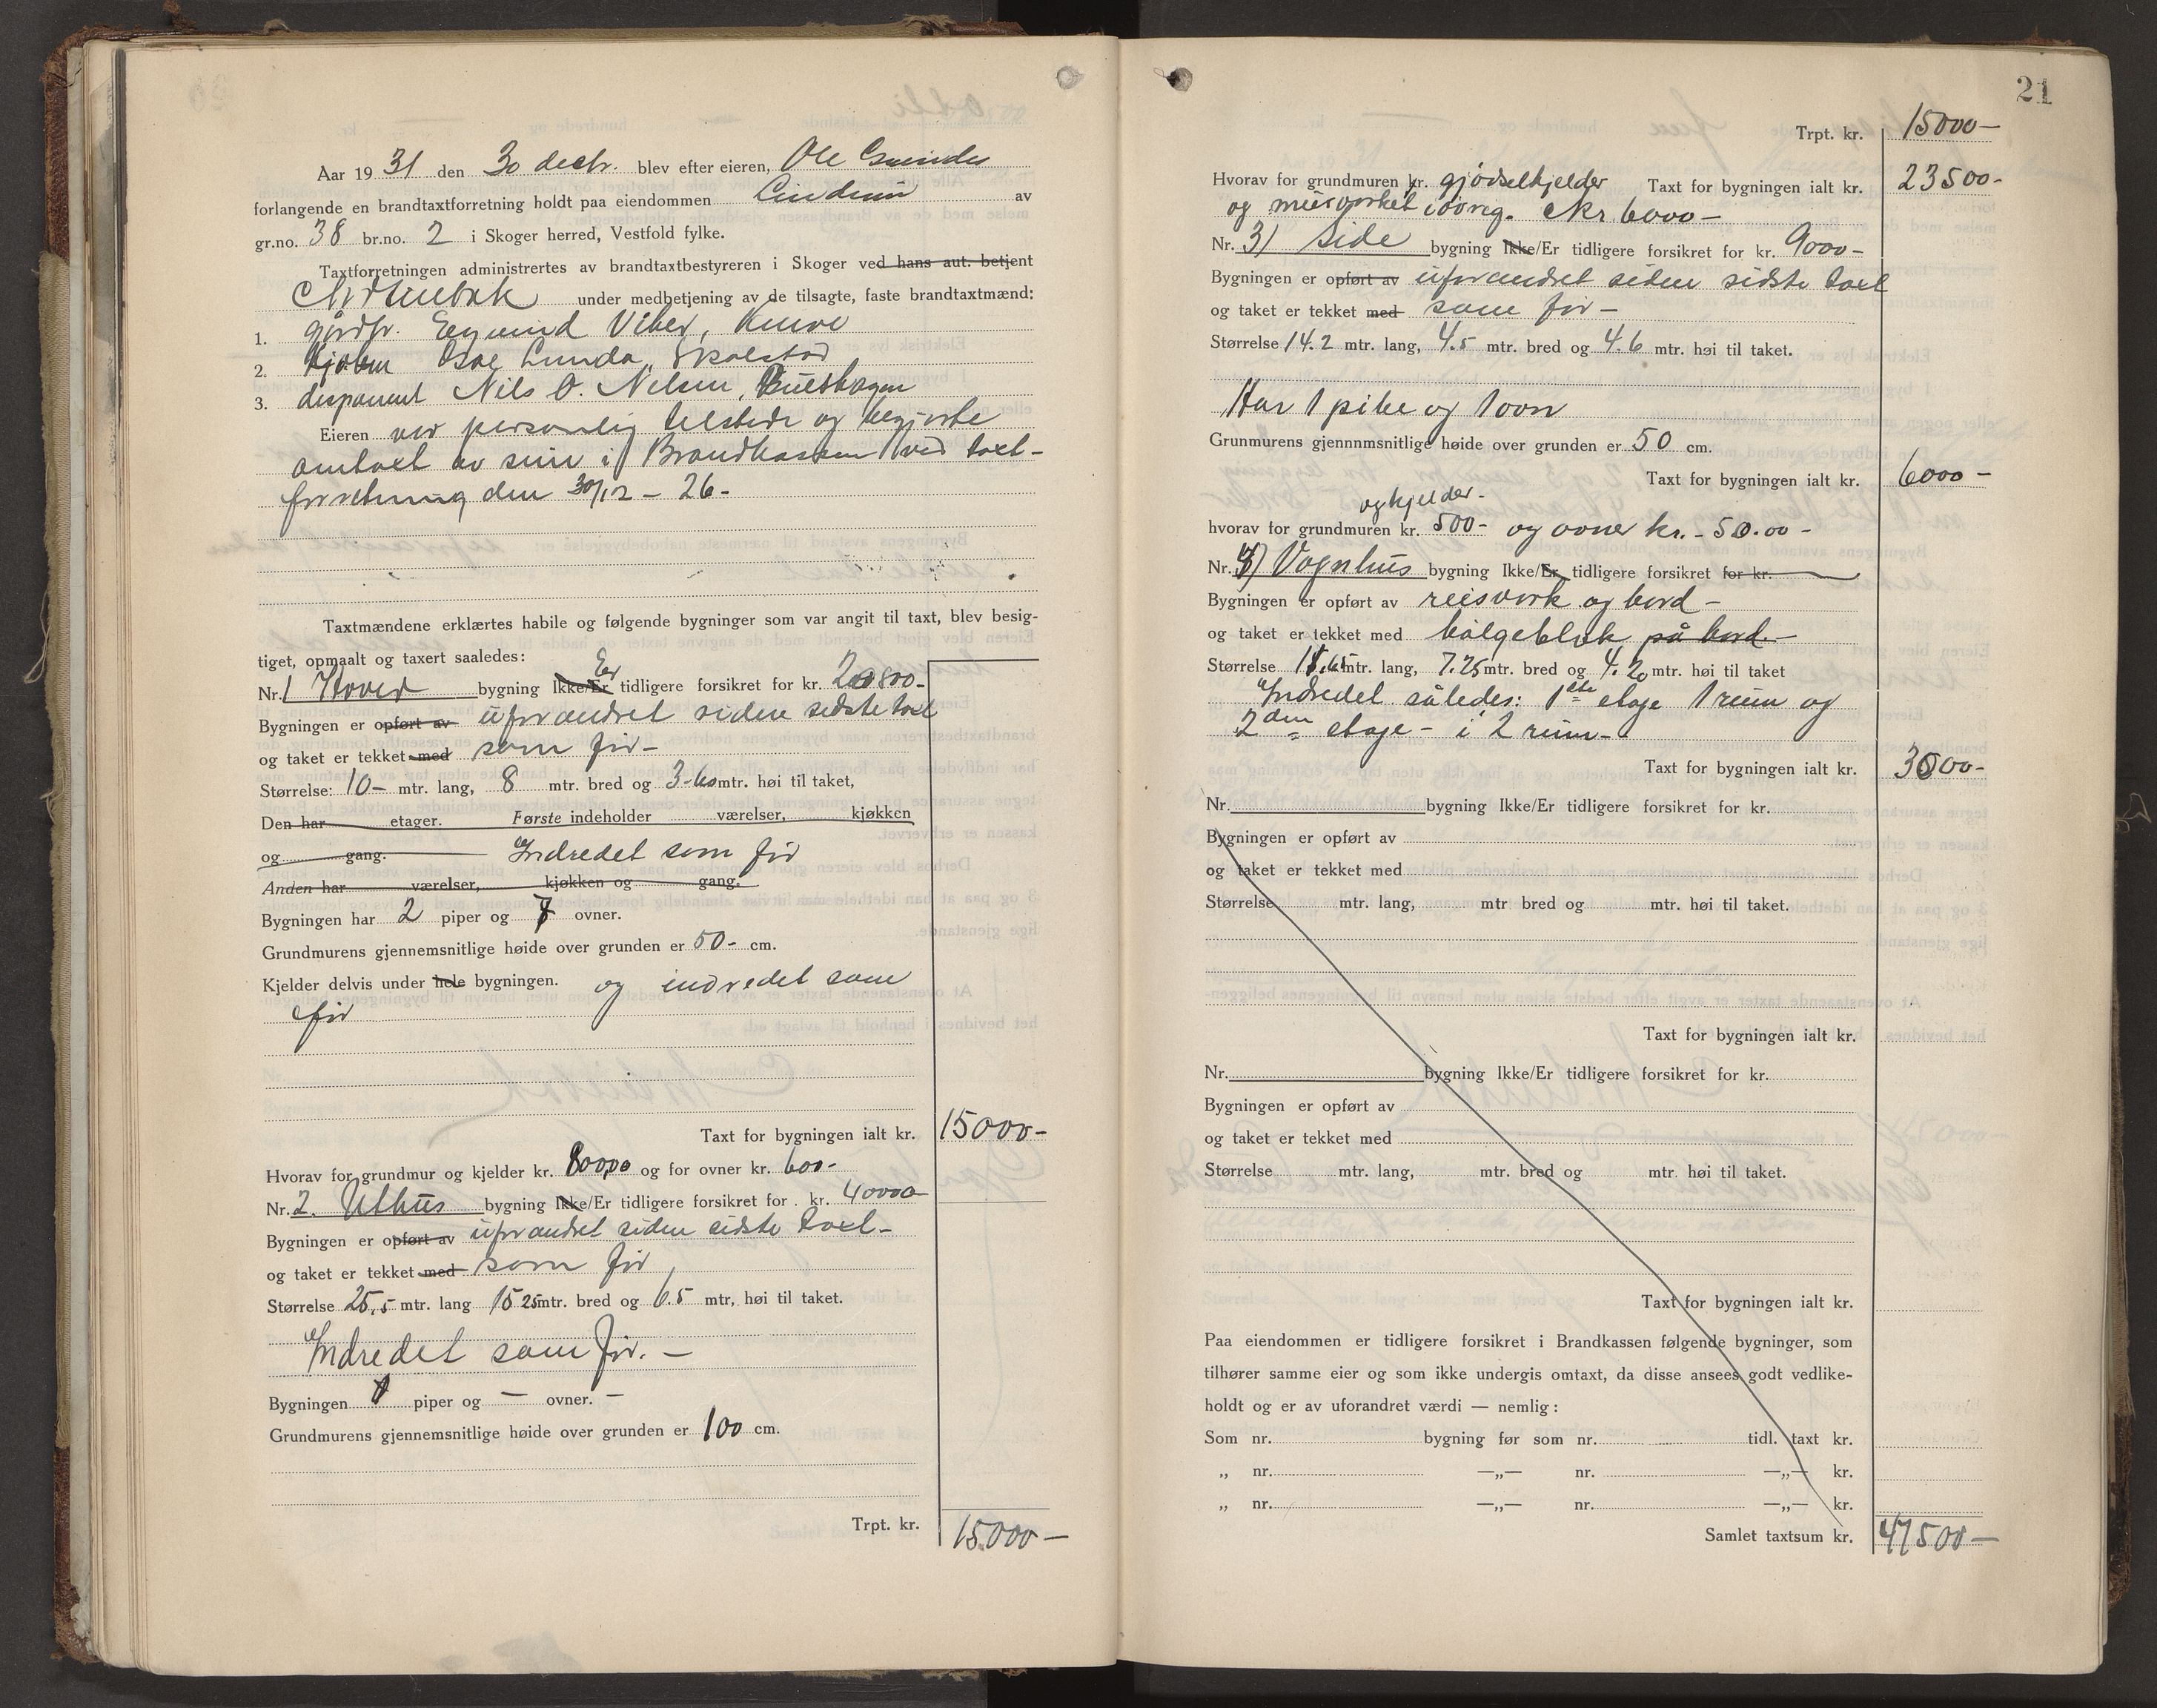 Aar 1931 den 30 decbr. blev efter eieren, Ole
forlangende en brandtaxtforretning holdt paa eiendommen Lindrum av
gr.no. 38 br.no. 2 i Skoger herred, Vestfold fylke.
Taxtforretningen administrertes av brandtaxtbestyreren i Skoger ved hans aut. betjent
under medbetjening av de tilsagte, faste brandtaxtmænd:
1. gårdbr.
2. Lunda, Skalstad
3. disponent Nils O. Nelsen,
Eieren var personlig tilstede og begjærte
omtaxt av sine i Brandkassen ved taxt-
forretning den 30/12 - 26 -
Taxtmændene erklærtes habile og følgende bygninger som var angit til taxt, blev besig-
tiget, opmaalt og taxert saaledes:
Nr. 1 Hoved bygning Ikke/Er Er tidligere forsikret for kr. 20800-
Bygningen er opført av uforandret siden sidste taxt
og taket er tekket med som før -
Størrelse: 10- mtr. lang, 8 mtr. bred og 3-60 mtr. høi til taket,
Den har etager. Første indeholder værelser, kjøkken
og gang. Indredet som før
Anden har værelser, kjøkken og gang.
Bygningen har 2 piper og 7 ovner.
Grundmurens gjennemsnitlige høide over grunden er 50- cm.
Kjelder delvis under hele bygningen. og indredet som
før
Taxt for bygningen ialt kr. 15000-
Hvorav for grundmur og kjelder kr. og for ovner kr. 600-
Nr. 2. Uthus bygning Ikke/Er tidligere forsikret for . kr. 40000-
Bygningen er opført av uforandret siden sidste taxt -
og taket er tekket med som før
Størrelse 25,5 mtr. lang 15 25 mtr. bred og 6.5 mtr, høi til taket.
Indredet som før. -
Bygningen piper og — ovner. -
Grundmurens gjennemsnitlige høide over grunden er 100 cm.
Trpt. kr. 15000 -
21
Trpt. kr. 15000 -
Hvorav for grundmuren kr. gjødselkjelder Taxt for bygningen ialt kr. 23500-
og murværket iøvrig. Kr 6000 -
Nr. 3) Side bygning Ikke/Er tidligere forsikret for kr. 9000-
Bygningen er opført av uforandret siden sidste taxt
og taket er tekket med som før -
Størrelse 14.2 mtr. lang, 4.5 mtr. bred og 4.6 mtr. høi til taket.
Har 1 pibe og 1 ovn
Grunmurens gjennnmsnitlige høide over grunden er 50 cm.
Taxt for bygningen ialt kr. 6000 -
og kjelder -
hvorav for grundmuren kr. 500- og ovner kr. - 50.00 -
Nr. 4) Vognhus bygning Ikke/Er tidligere forsikret for kr.
Bygningen er opført av reisverk og bord -
og taket er tekket med bølgeblek på bord. -
Størrelse mtr. lang, 7.25 mtr. bred og 4.20 mtr. høi til taket
Indredet således: 1ste etage 1 rum og
2den etage - i 2 rum -
Taxt for bygningen ialt kr. 3000-
Nr. bygning Ikke/Er tidligere forsikret for kr.
Bygningen er opført av
og taket er tekket med
Størrelse mtr. lang, mtr bred og mtr. høi til taket.
Taxt for bygningen ialt kr.
Nr. bygning Ikke/Er tidligere forsikret for kr.
Bygningen er opført av
og taket er tekket med
Størrelse mtr. lang, mtr. bred og mtr. høi til taket.
Taxt for bygningen ialt kr.
Paa eiendommen er tidligere forsikret i Brandkassen følgende bygninger, som
tilhører samme eier og som ikke undergis omtaxt, da disse ansees godt vedlike-
holdt og er av uforandret værdi — nemlig:
Som nr. bygning før som nr. tidl. taxt kr.
„ nr. —„— nr. —„— kr.
„ nr. —„— nr. —„— kr.
Samlet taxtsum kr. 47500-